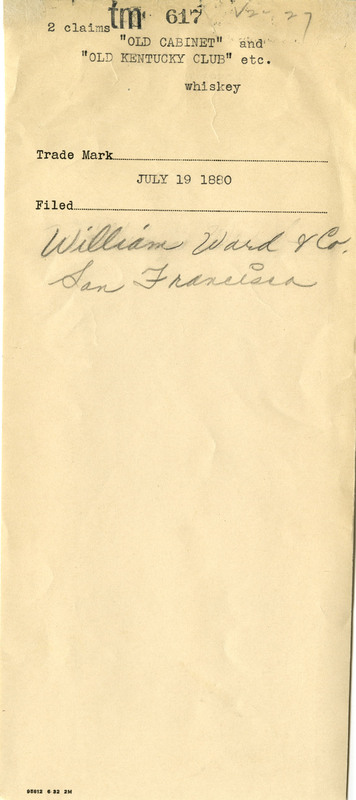 tm 617
2 claims
"OLD CABINET" and
"OLD KENTUCKY CLUB" etc.
whiskey
Trade Mark
JULY 19 1880
Filed
William Ward & Co.
San Francisco
98812 6-32 2M